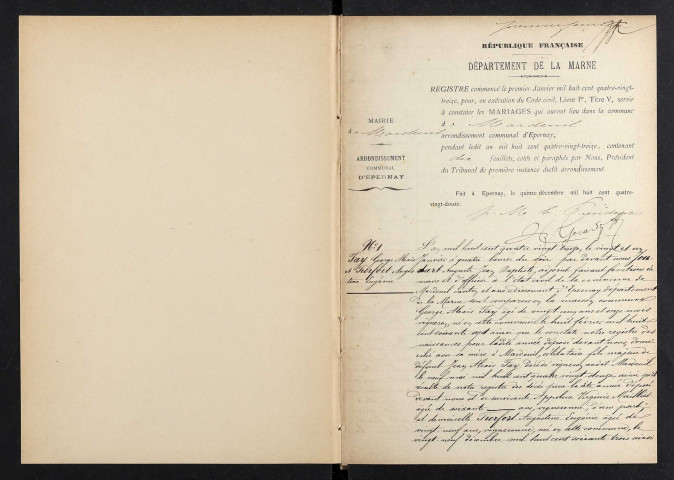 RÉPUBLIQUE FRANÇAISE
DÉPARTEMENT DE LA MARNE
REGISTRE commencé le premier Janvier mil huit cent quatre-vingt-
treize, pour, en exécution du Code civil, Livre Ier, Titre V, servir
à constater les MARIAGES qui auront lieu dans la commune
d Mardeuil
arrondissement communal d'Epernay,
pendant ledit an mil huit cent quatre-vingt-treize, contenant
feuillets, cotés et paraphés par Nous, Président
du Tribunal de première instance dudit arrondissement.
Fait à Epernay, le quinze décembre mil huit cent quatre-
vingt-douze.
MAIRIE
d Mardeuil
ARRONDISSEMENT
COMMUNAL
D'ÉPERNAY
N° 1
Fay George Alexis
L'an mil huit cent quatre vingt treize, le vingt et un
Janvier à quatre heures du soir par devant nous
Auguste Jean Baptiste, adjoint faisant fonctions de
maire et d'officier de l'état civil de la commune de
Mardeuil canton et arrondissement d'Epernay département
de la Marne sont comparus en la maison commune
George Alexis Fay âgé de vingt cinq ans et onze mois
vigneron, né en cette commune le huit février mil huit
cent soixante sept ainsi que le constate notre registre des
naissances pour ladite année déposé devant nous, domi-
cilié avec sa mère à Mardeuil, célibataire fils majeur de
défunt Jean Alexis Fay décédé vigneron audit Mardeuil
le neuf mai mil huit cent quatre vingt douze ainsi qu'il
résulte de notre registre des décès pour ladite année déposé
devant nous et de survivante Appoline Virginie
âgée de soixante ans, vigneronne, d'une part;
et demoiselle Augustine Eugénie âgée de
vingt neuf ans, vigneronne, née en cette commune, le
vingt neuf décembre mil huit cent soixante trois ainsi